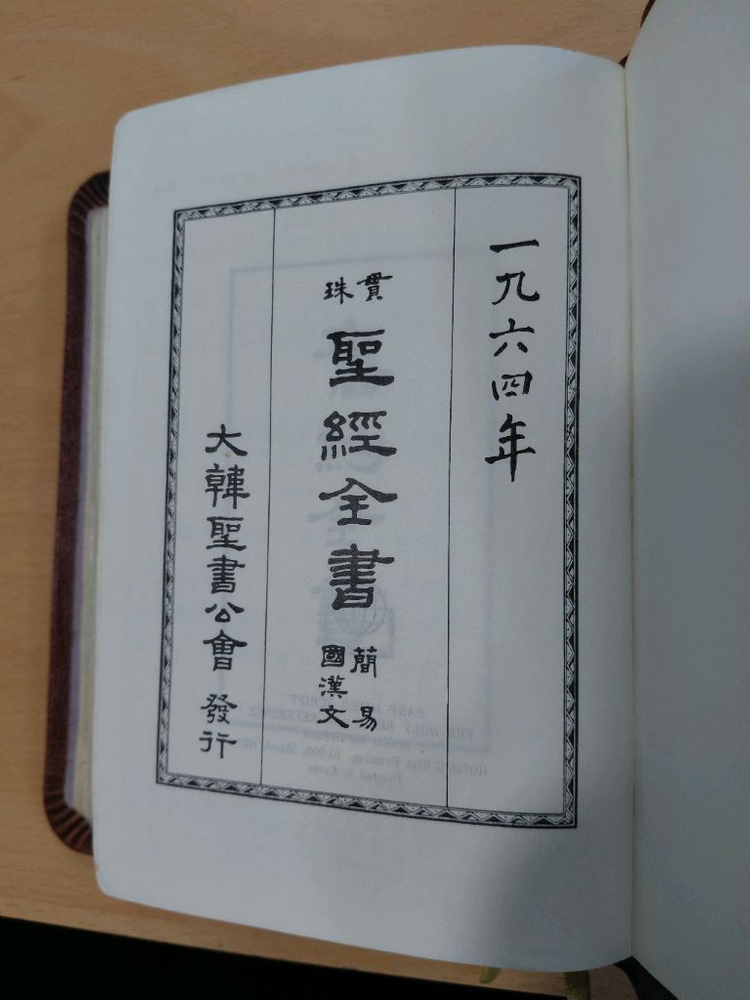 一九六四年
貫珠
聖經全書
簡易
國漢文
大韓聖書公會 發行